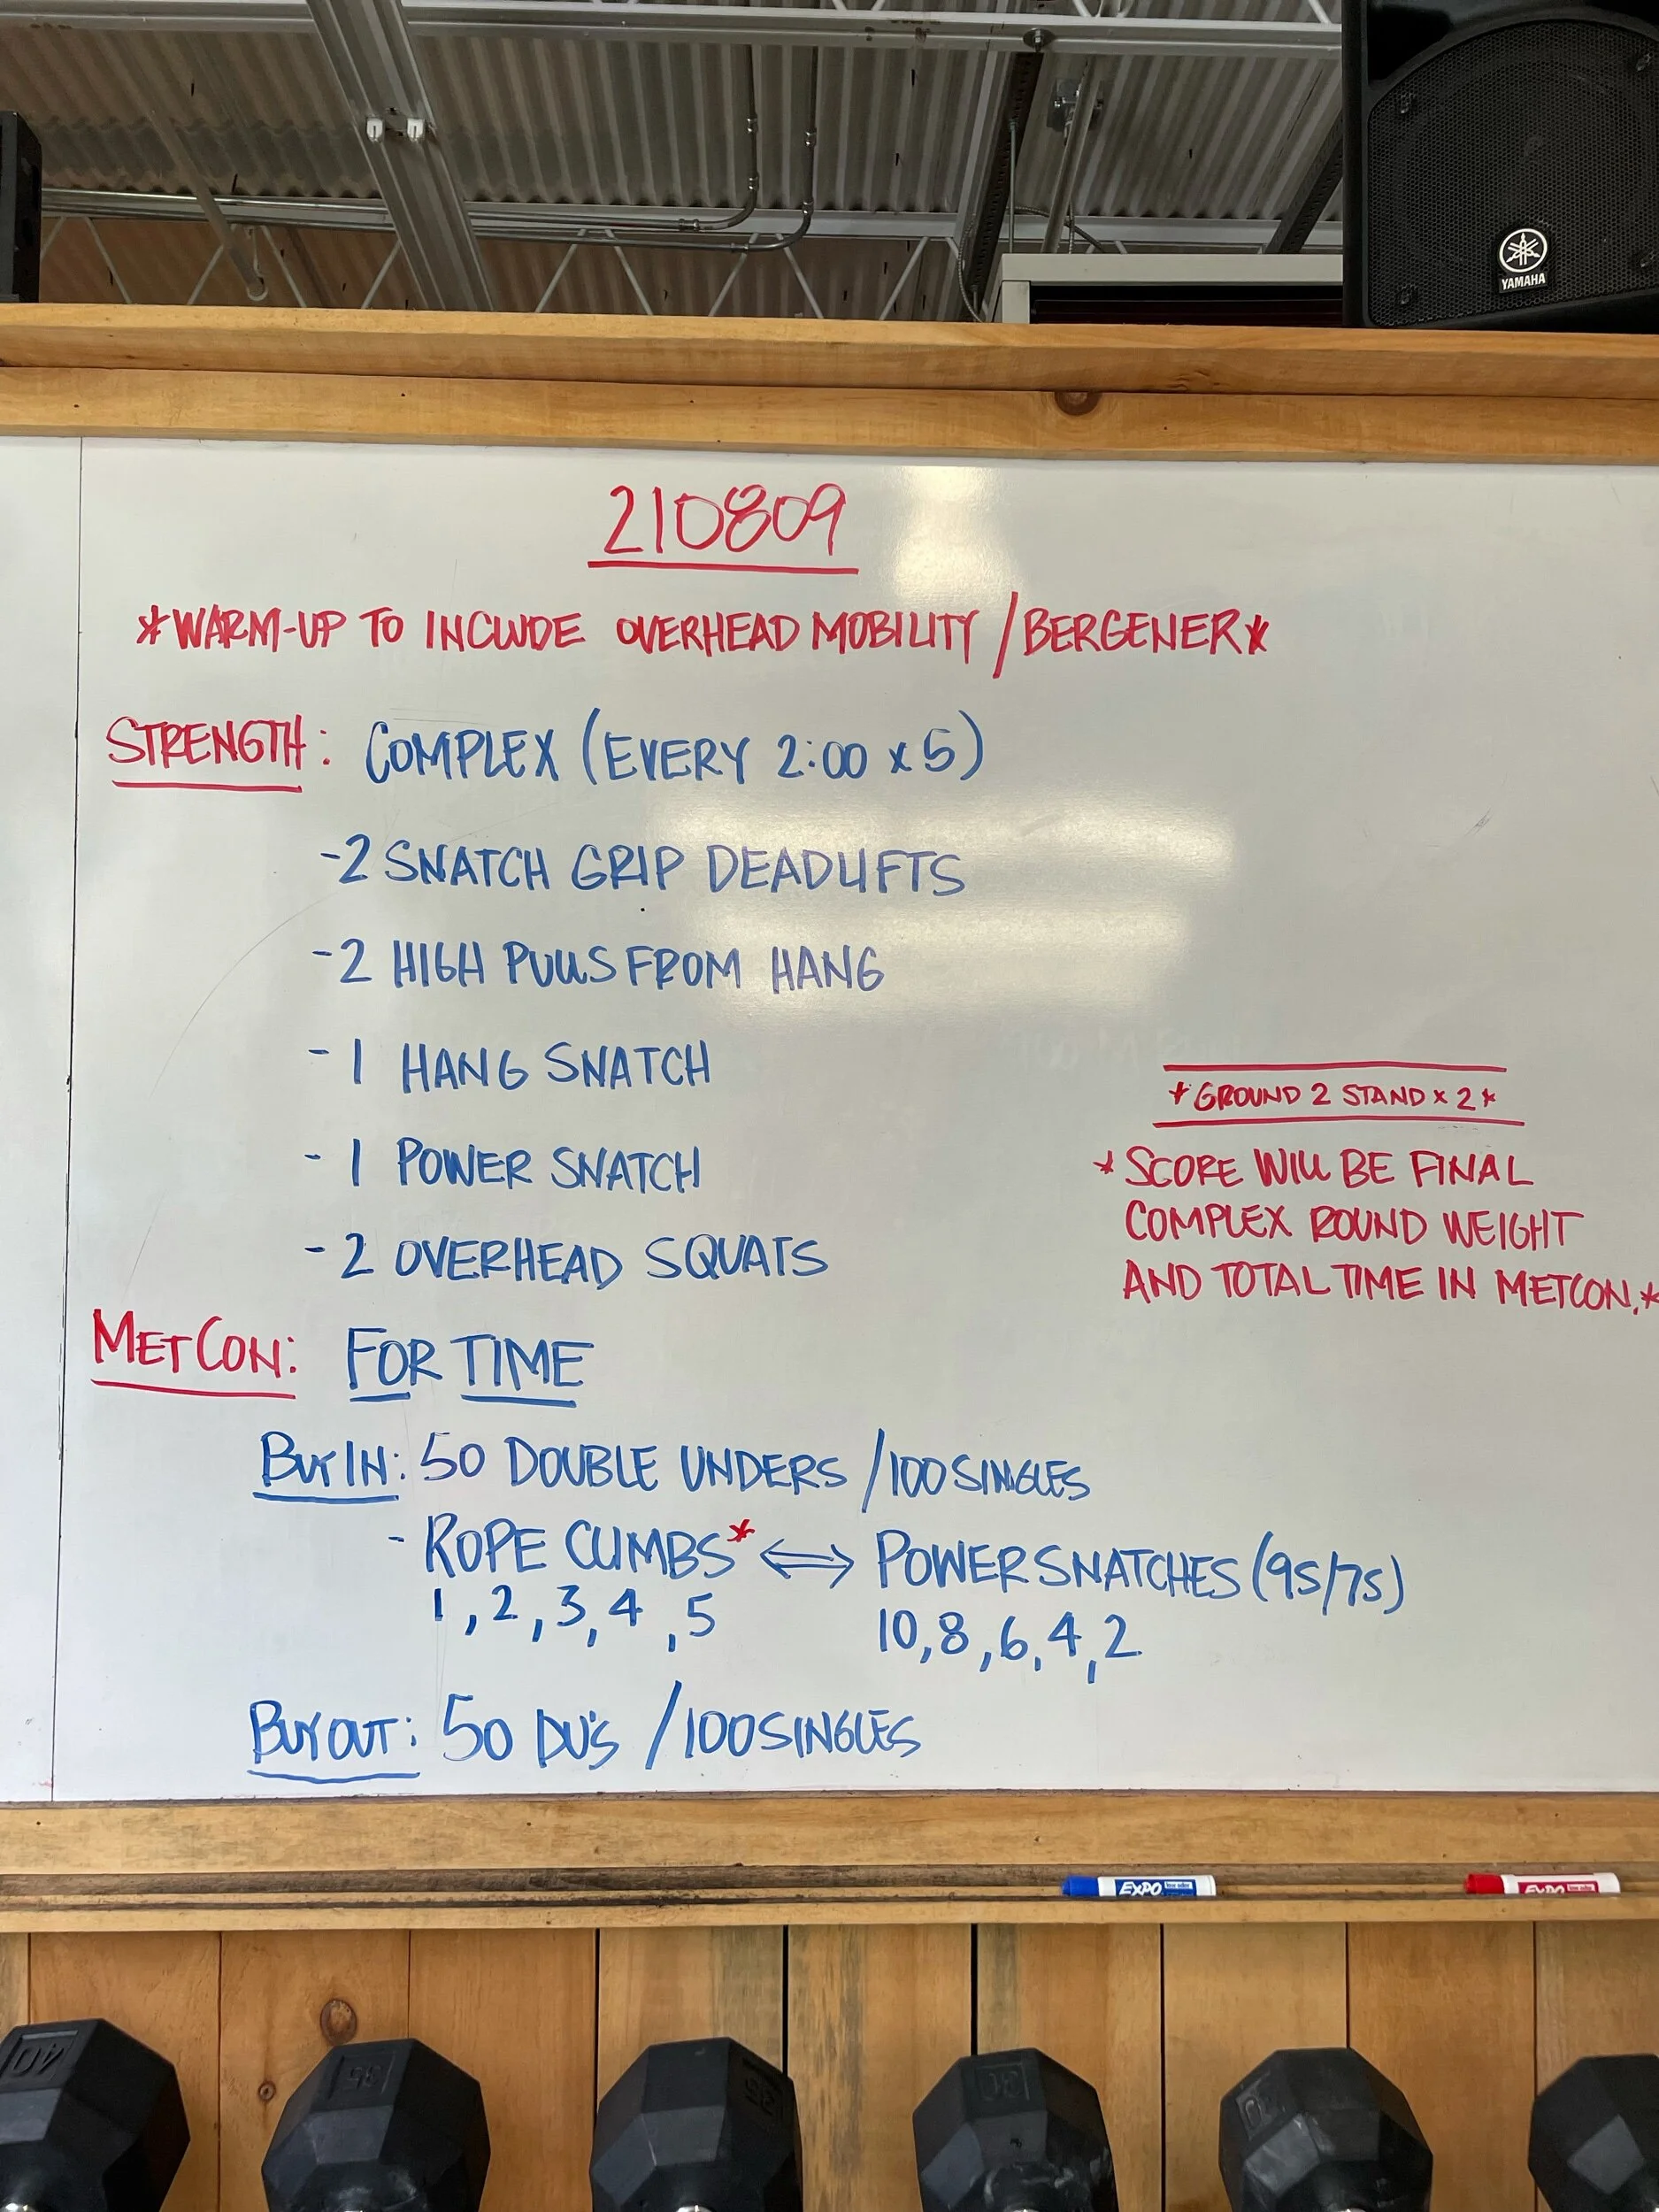 YAMAHA
210809
*WARM-UP TO INCLUDE OVERHEAD MOBILITY / BERGENER*
STRENGTH: COMPLEX (EVERY 2:00 x 5)
-2 SNATCH GRIP DEADLIFTS
-2 HIGH PULLS FROM HANG
-1 HANG SNATCH
-1 POWER SNATCH
-2 OVERHEAD SQUATS
*GROUND 2 STAND x 2*
*SCORE WILL BE FINAL
COMPLEX ROUND WEIGHT
AND TOTAL TIME IN METCON.*
METCON: FOR TIME
BUY IN: 50 DOUBLE UNDERS / 100 SINGLES
- ROPE CLIMBS* ⟺ POWER SNATCHES (95/75)
1, 2, 3, 4, 5 10, 8, 6, 4, 2
BUY OUT: 50 DU'S / 100 SINGLES
EXPO EXPO
40 35 30